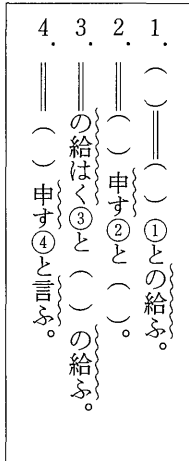 1.（　）＝（　）①との給ふ。
2.＝（　）申す②と（　）。
3.＝の給はく③と（　）の給ふ。
4.＝（　）申す④と言ふ。